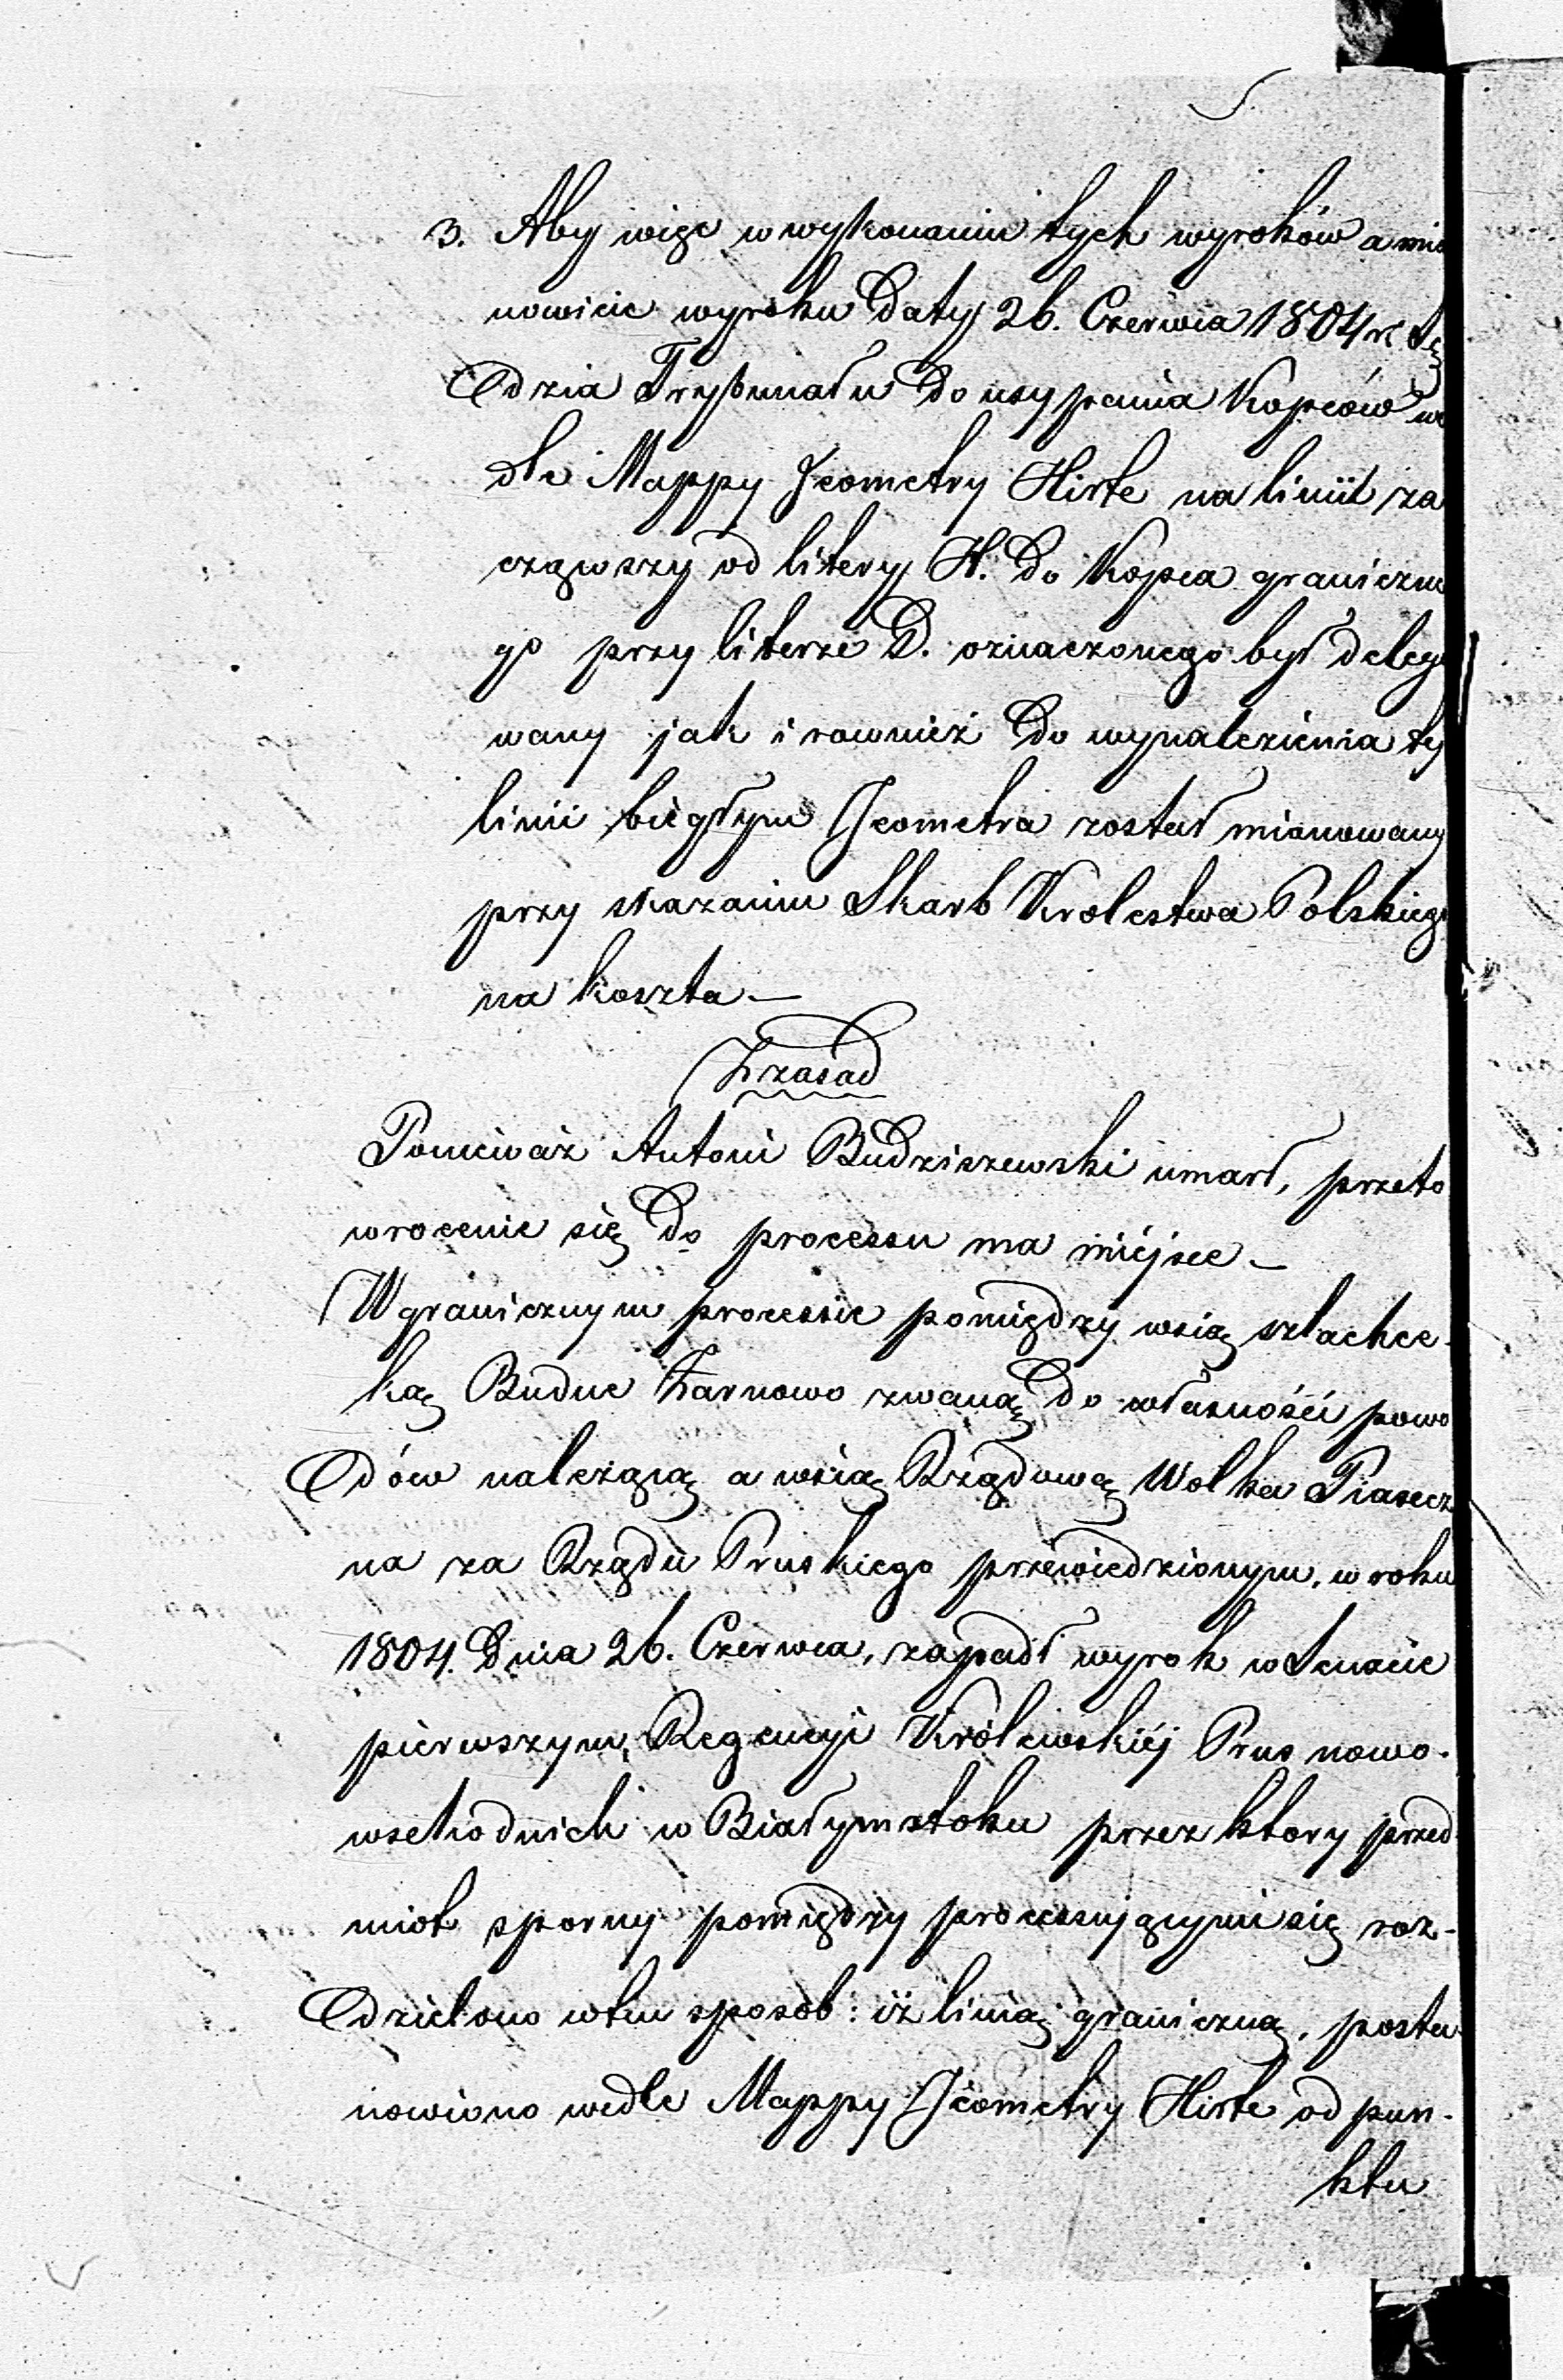 3. Aby więc w wykonaniu tych wyroków a mia
nowicie wyroku daty 26. Czerwca 1804 r. Sę
dzia Trybunału do usypania Kopców we
dle Mappy Jeometry Hirte na linii za
cząwszy od litery H. do Kopca graniczne
go przy literze D. oznaczonego był delego
wany jak i rownież do wynalezienia tej
linii biegłym Jeometra został mianowany
przy skazaniu Skarb Krolestwa Polskiego
na koszta —
Z zasad
Ponieważ Antoni Budziszewski umarł, przeto
wrocenie się do processu ma miéjsce —
W granicznym processie pomiędzy wsią szlachec-
ką Budne Żarnowo zwaną do własności powo
dów należącą a wsią Rządową Wolka Piasecz
na za Rządu Pruskiego przewiedzionym, w roku
1804. Dnia 26. Czerwca, zapadł wyrok w Senacie
pierwszym, Regencyi Królewskiéj Prus nowo-
wschodnich w Białymstoku przez ktory przed
miot sporny pomiędzy processującymi się roz-
dzielono w ten sposób: iż linią graniczną, posta
nowiono wedle Mappy Jeometry Hirte od pun-
ktu